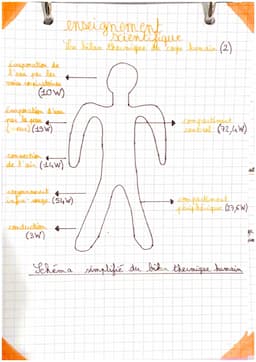 enseignement
scientifique
Le bilan thermique du corps humain (2)
évaporation de
l'eau par les
voies respiratoires
(10W)
évaporation d'eau
par la peau
(15W)
convection
de l'air (14W)
rayonnement
infra-rouge (54W)
conduction
(3W)
compartiment
central (72,4W)
compartiment
périphérique (27,6W)
Schéma simplifié du bilan thermique humain